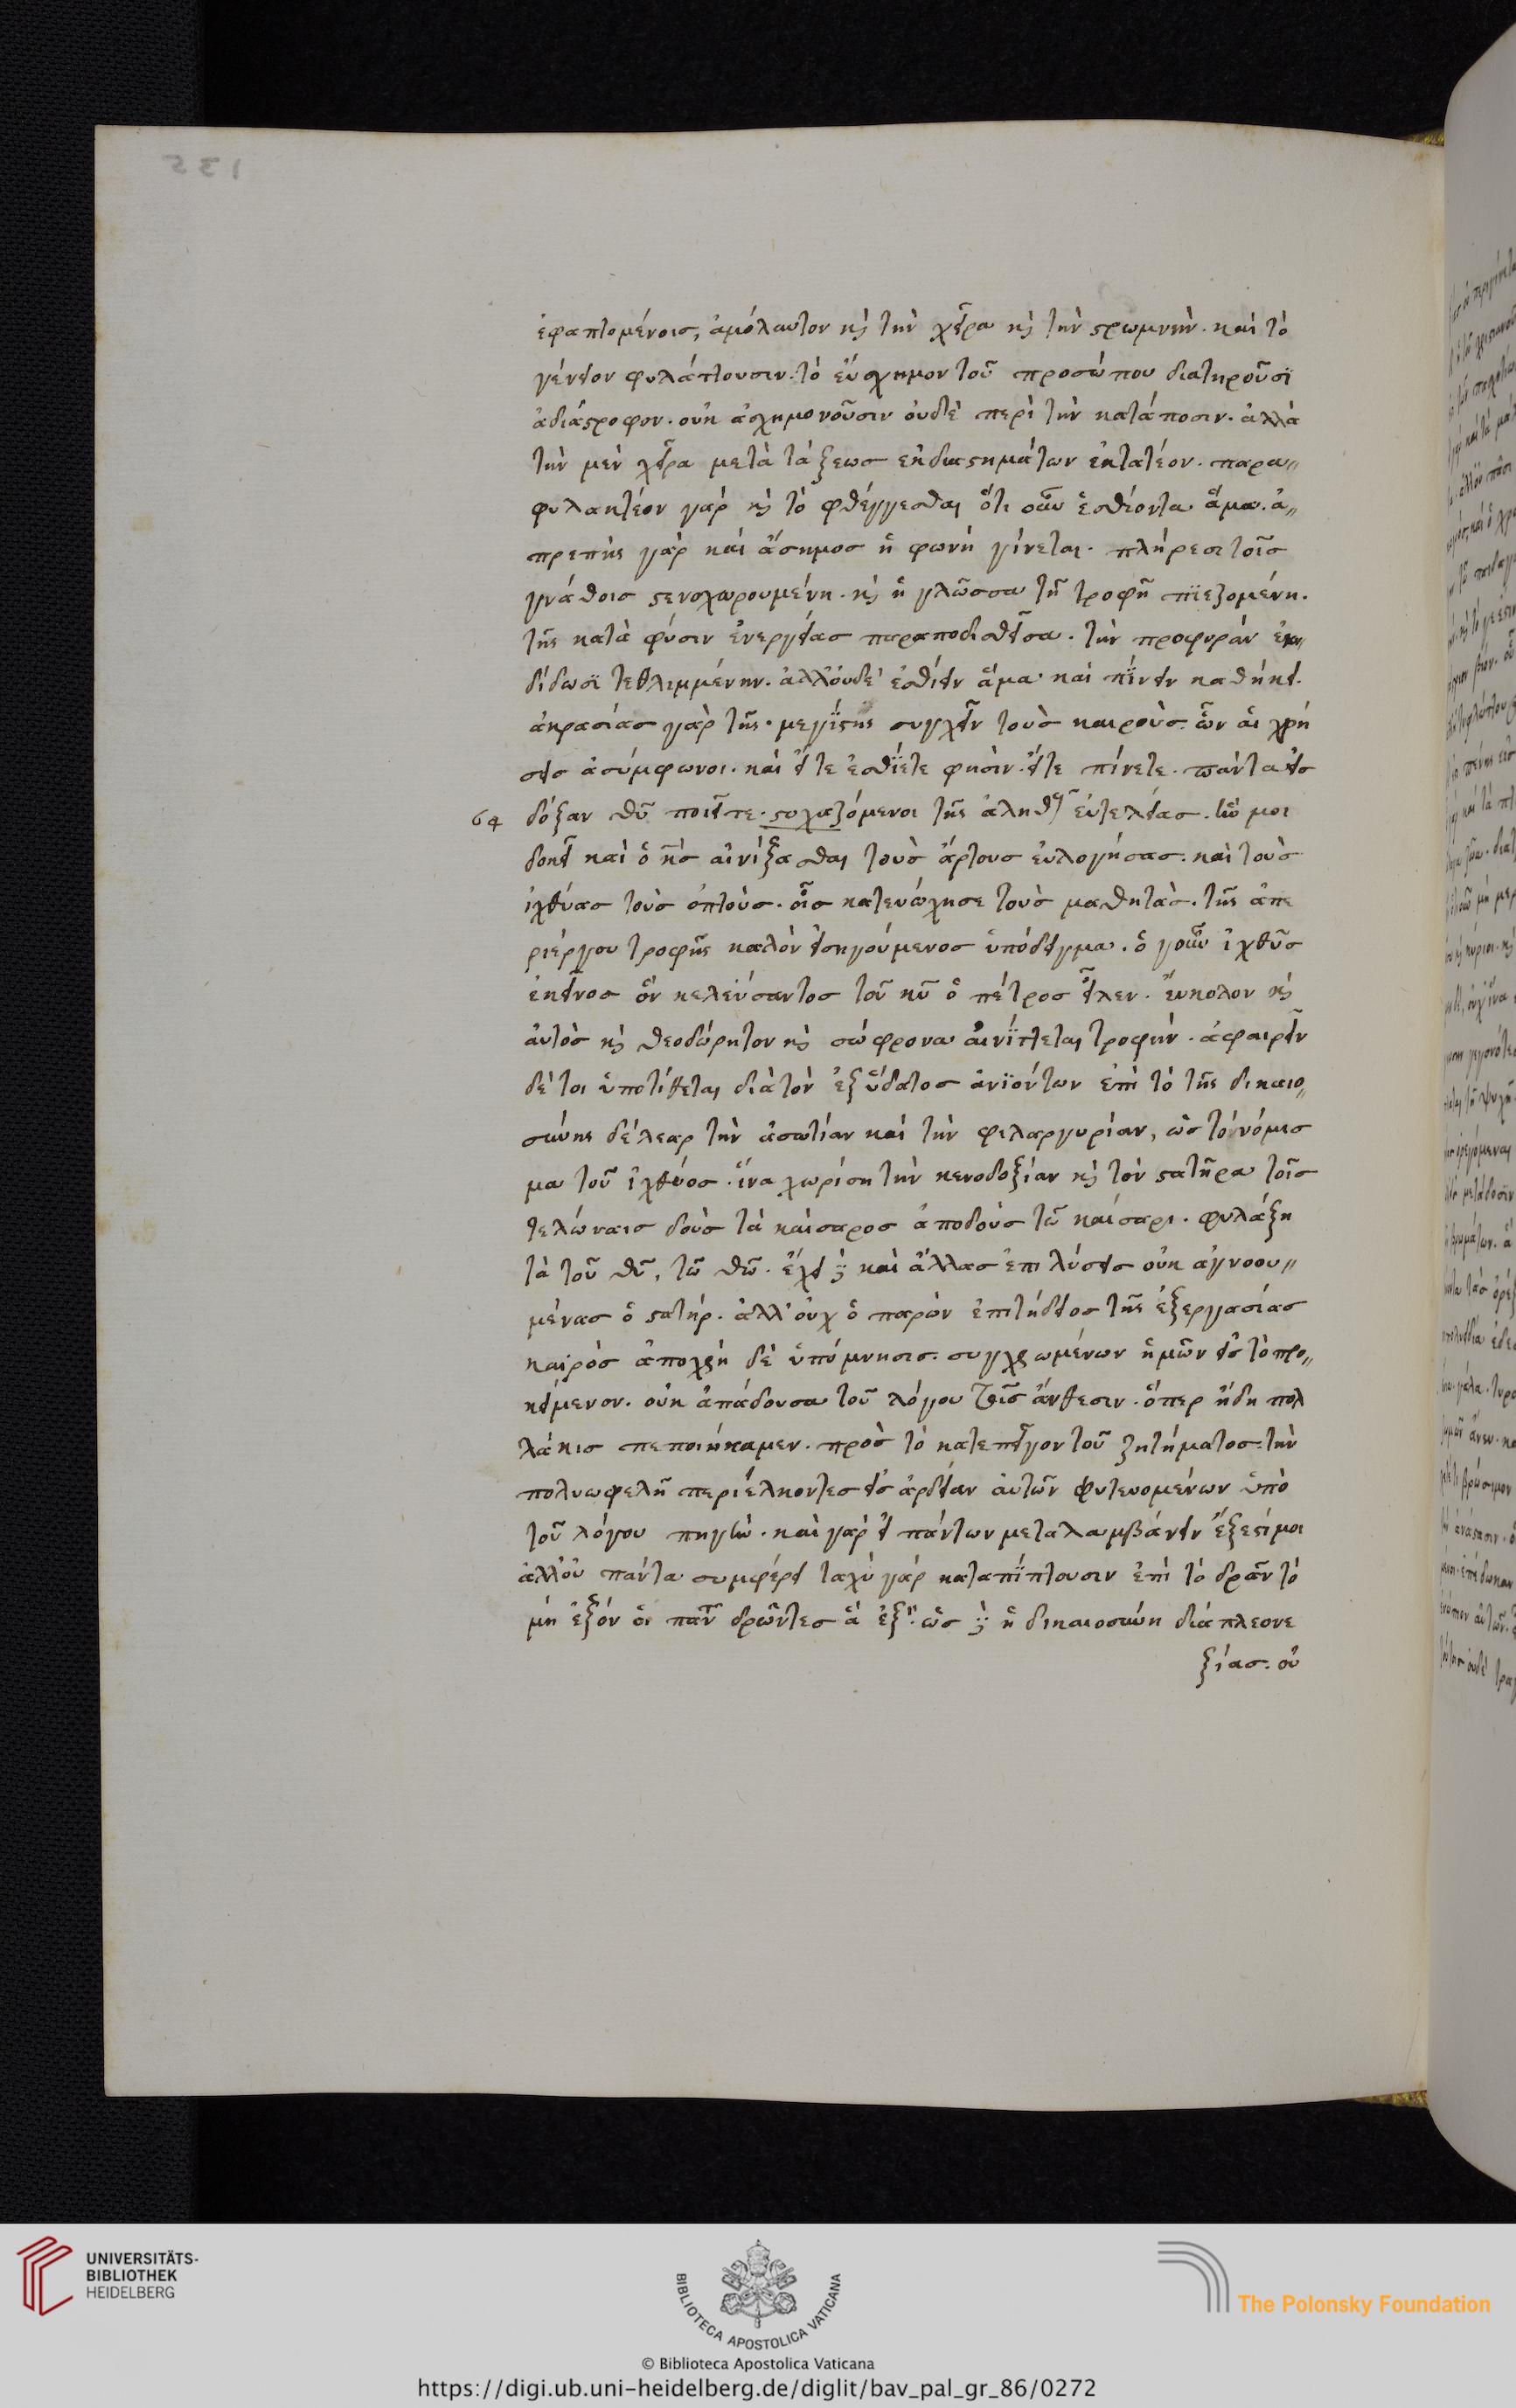 ἐφαπτομένοις, ἀμόλαυτον κ̀ς τὴν χεῖρα κ̀ς τὴν στρωμνὴν. καὶ τὸ
γένειον φυλάττουσιν. τὸ εὔσχημον τοῦ προσώπου διατηροῦσϊ
ἀδιάστροφον. οὐκ ἀσχημονοῦσιν οὐδὲ περὶ τὴν κατάποσιν. ἀλλὰ
τὴν μὲν χεῖρα μετὰ τάξεως ἐκδιαστημάτων ἐκτατέον. παρα〃
φυλακτέον γὰρ κ̀ς τὸ φθέγγεσθαι ὅτι οὖν ἐσθίοντα ἅμα. ἀ〃
πρεπὴς γὰρ καὶ ἄσημος ἡ φωνὴ γίνεται. πλήρεσι τοῖς
γνάθοις στενοχωρουμένη. κ̀ς ἡ γλῶσσα τῇ τροφῇ πϊεζομένη.
τῆς κατὰ φύσιν ἐνεργείας παραποδισθεῖσα. τὴν προφορὰν ἐκ〃
δίδωσϊ τεθλιμμένην. ἀλλ᾽ούδὲ ἐσθίειν ἅμα καὶ πΐνειν καθήκει.
ἀκρασίας γὰρ τῆς. μεγΐστης συγχεῖν τοὺς καιροὺς. ὧν αἱ χρή
σεις ἀσύμφωνοι. καὶ εἴτε ἐσθΐετε φησὶν. εἴτε πίνετε. πάντα εἰς
64 δόξαν θῦ ποιεῖτε. στοχαζόμενοι τῆς ἀληθοῦς εὐτελείας. ἥν μοι
δοκεῖ καὶ ὁ κ̅ς αἰνίξασθαι τοὺς ἄρτους εὐλογήσας. καὶ τοὺς
ἰχθύας τοὺς ὀπτοὺς. οἷς κατευώχησε τοὺς μαθητὰς. τῆς ἀπε
ριέργου τροφῆς καλὸν εἰσηγούμενος ὑπόδειγμα. ὁ γοῦν ἰχθῦς
ἐκεῖνος ὃν κελεύσαντος τοῦ κῦ ὁ πέτρος εἷλεν. εὔκολον κ̀ς
αὐτὸς κ̀ς θεοδώρητον κ̀ς σώφρονα αἰνΐττεται τροφὴν. ἀφαιρεῖν
δέ τοι ὑποτίθεται διὰ τὸν ἐξ ὕδατος ἀνϊόντων ἐπὶ τὸ τῆς δικαιο〃
σύνης δέλεαρ τὴν ἀσωτίαν καὶ τὴν φιλαργυρίαν, ὡς τὸ νόμισ
μα τοῦ ἰχθύος. ἵνα χωρίσῃ τὴν κενοδοξίαν κ̀ς τὸν στατῆρα τοῖς
τελώναις δοὺς τὰ καίσαρος ἀποδοὺς τῷ καίσαρι. φυλάξῃ
τὰ τοῦ θῦ, τῷ θῷ. ἔχει καὶ ἄλλας ἐπιλύσεις οὐκ ἀγνοου〃
μένας ὁ στατήρ. ἀλλ᾽ οὐχ ὁ παρὼν ἐπιτήδειος τῆς ἐξεργασίας
καιρὸς ἀποχρὴ δὲ ὑπόμνησις. συγχρωμένων ἡμῶν εἰς τὸ προ〃
κείμενον. οὐκ ἀπάδουσα τοῦ λόγου τοῖς ἄνθεσιν. ὅπερ ἤδη πολ
λάκις πεποιήκαμεν. πρὸς τὸ κατεπεῖγον τοῦ ζητήματος. τὴν
πολυωφελῆ περιέλκοντες εἰς ἀρδείαν αὐτῶν φυτευομένων ὑπὸ
τοῦ λόγου πηγὴν. καὶ γὰρ εἰ πάντων μεταλαμβάνειν ἔξεστί μοι
ἀλλ᾽ οὐ πάντα συμφέρει ταχὺ γὰρ καταπΐπτουσιν ἐπὶ τὸ δρᾶν τὸ
μὴ ἐξὸν οἱ πᾶν δρῶντες ἃ ἐξῆν. ὡς ἡ δικαιοσύνη διὰ πλεονε
ξίας. οὐ
UNIVERSITÄTS-
BIBLIOTHEK
HEIDELBERG
BIBLIOTECA APOSTOLICA VATICANA
The Polonsky Foundation
© Biblioteca Apostolica Vaticana
https://digi.ub.uni-heidelberg.de/diglit/bav_pal_gr_86/0272